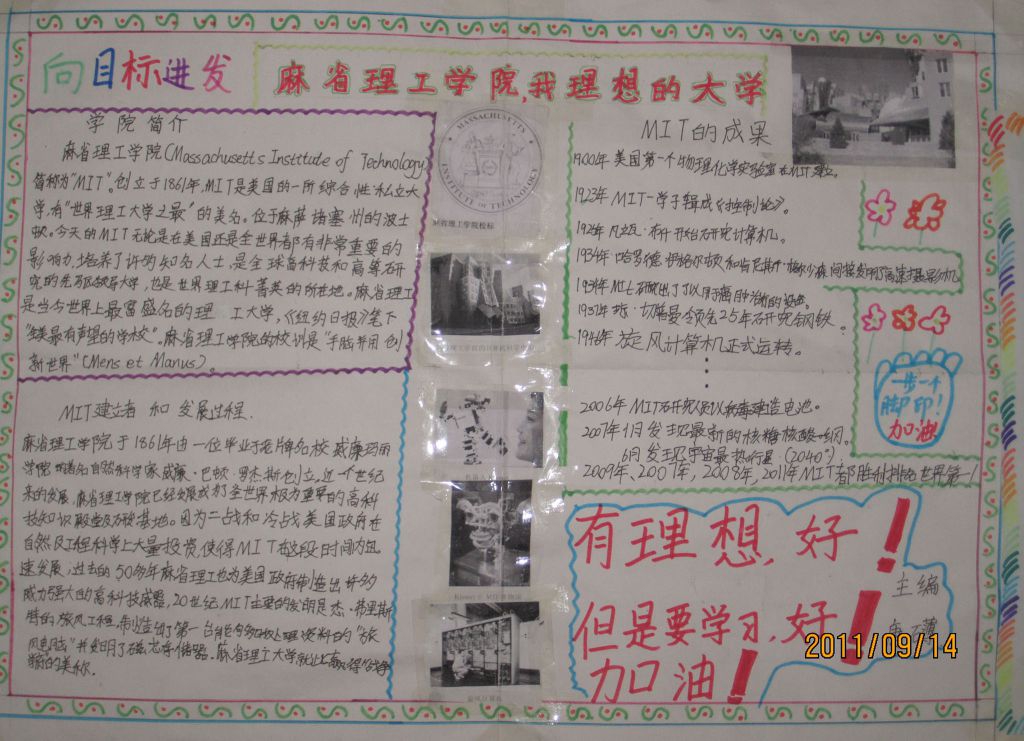 向目标进发
麻省理工学院,我理想的大学
学院简介
麻省理工学院(Massachusetts Institute of Technology)
简称为"MIT"。创立于1861年,MIT是美国的一所综合性私立大
学,有"世界理工大学之最"的美名。位于麻萨诸塞州的波士
顿。今天的MIT无论是在美国还是全世界都有非常重要的
影响力,培养了许多知名人士,是全球高科技和高等研
究的先驱领导大学,也是世界理工科菁英的所在地。麻省理工
是当今世界上最富盛名的理工大学,《纽约日报》笔下
"全美最有声望的学校"。麻省理工学院的校训是"手脑并用 创
新世界"(Mens et Manus)。
MIT建立者和发展过程.
麻省理工学院于1861年由一位毕业于老牌名校威廉玛丽
学院的著名自然科学家威廉·巴顿·罗杰斯创立,近一个世纪
来的发展,麻省理工学院已经发展成为了全世界极为重要的高科
技知识殿堂及研发基地。因为二战和冷战美国政府在
自然及工程科学上大量投资,使得MIT在这段时间内迅
速发展,过去的50多年麻省理工也为美国政府制造出许多
威力强大的高科技武器,20世纪MIT主要的发明是杰·弗里斯
特的"旋风工程,制造了第一台能够实时处理资料的"旋
风电脑"并发明了磁芯存储器。麻省理工大学就此赢得"战争
的美称.
MASSACHUSETTS INSTITUTE OF TECHNOLOGY
麻省理工学院校标
MIT的成果
1900年美国第一个物理化学实验室在MIT建立。
1923年MIT一学子辑成《控制论》。
1928年凡瓦·布什开始研究计算机。
1934年哈罗德·伊格尔顿和肯尼斯·
2006年MIT研究人员以病毒建造电池。
2007年1月发现最新的核糖核酸
6月发现宇宙最热行星(2040°)
2009年,2007年,2008年,2011年MIT都胜利排名世界第一
1946年旋风计算机正式运转。
一步一个
脚印!
加油
有理想,好!
但是要学习,好!
加油!
主编
2011/09/14